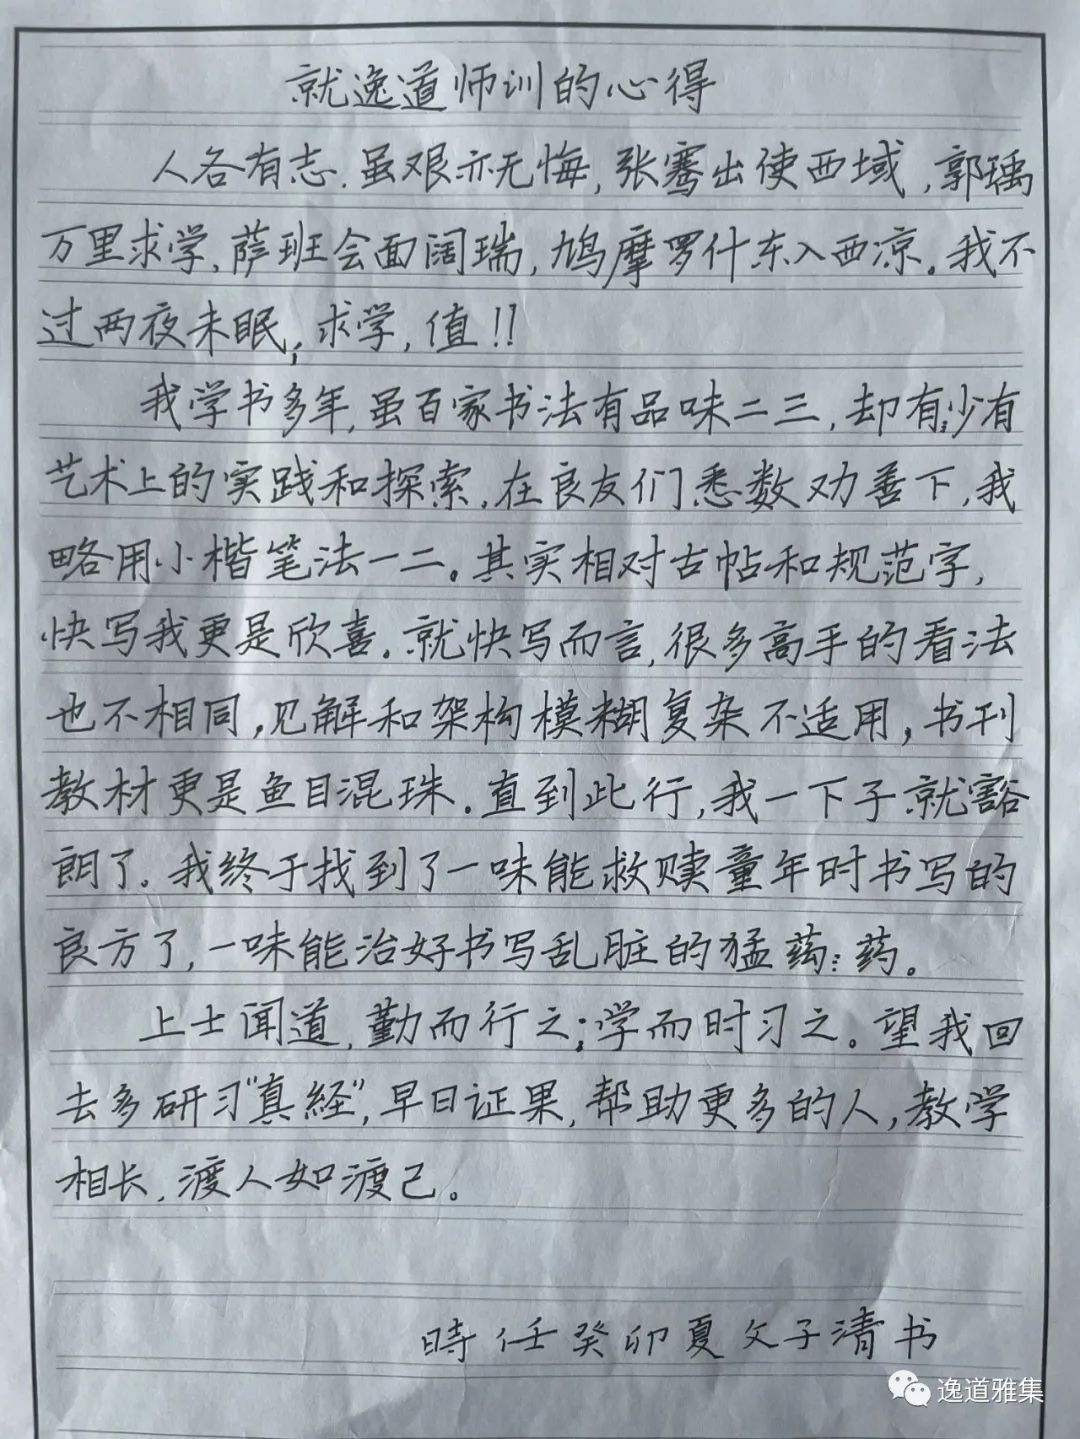 就逸道师训的心得
人各有志，虽艰亦无悔，张骞出使西域，郭瑀
万里求学，萨班会面阔瑞，鸠摩罗什东入西凉。我不
过两夜未眠；求学，值！！
我学书多年，虽百家书法有品味二三，却有:少有
艺术上的实践和探索，在良友们悉数劝善下，我
略用小楷笔法一二。其实相对古帖和规范字，
快写我更是欣喜。就快写而言，很多高手的看法
也不相同，见解和架构模糊复杂不适用，书刊
教材更是鱼目混珠。直到此行，我一下子就豁
朗了。我终于找到了一味能救赎童年时书写的
良方了，一味能治好书写乱脏的猛药:药。
上士闻道，勤而行之；学而时习之。望我回
去多研习"真経"，早日证果，帮助更多的人，教学
相长，渡人如渡己。
時任癸卯夏文子清书
逸道雅集